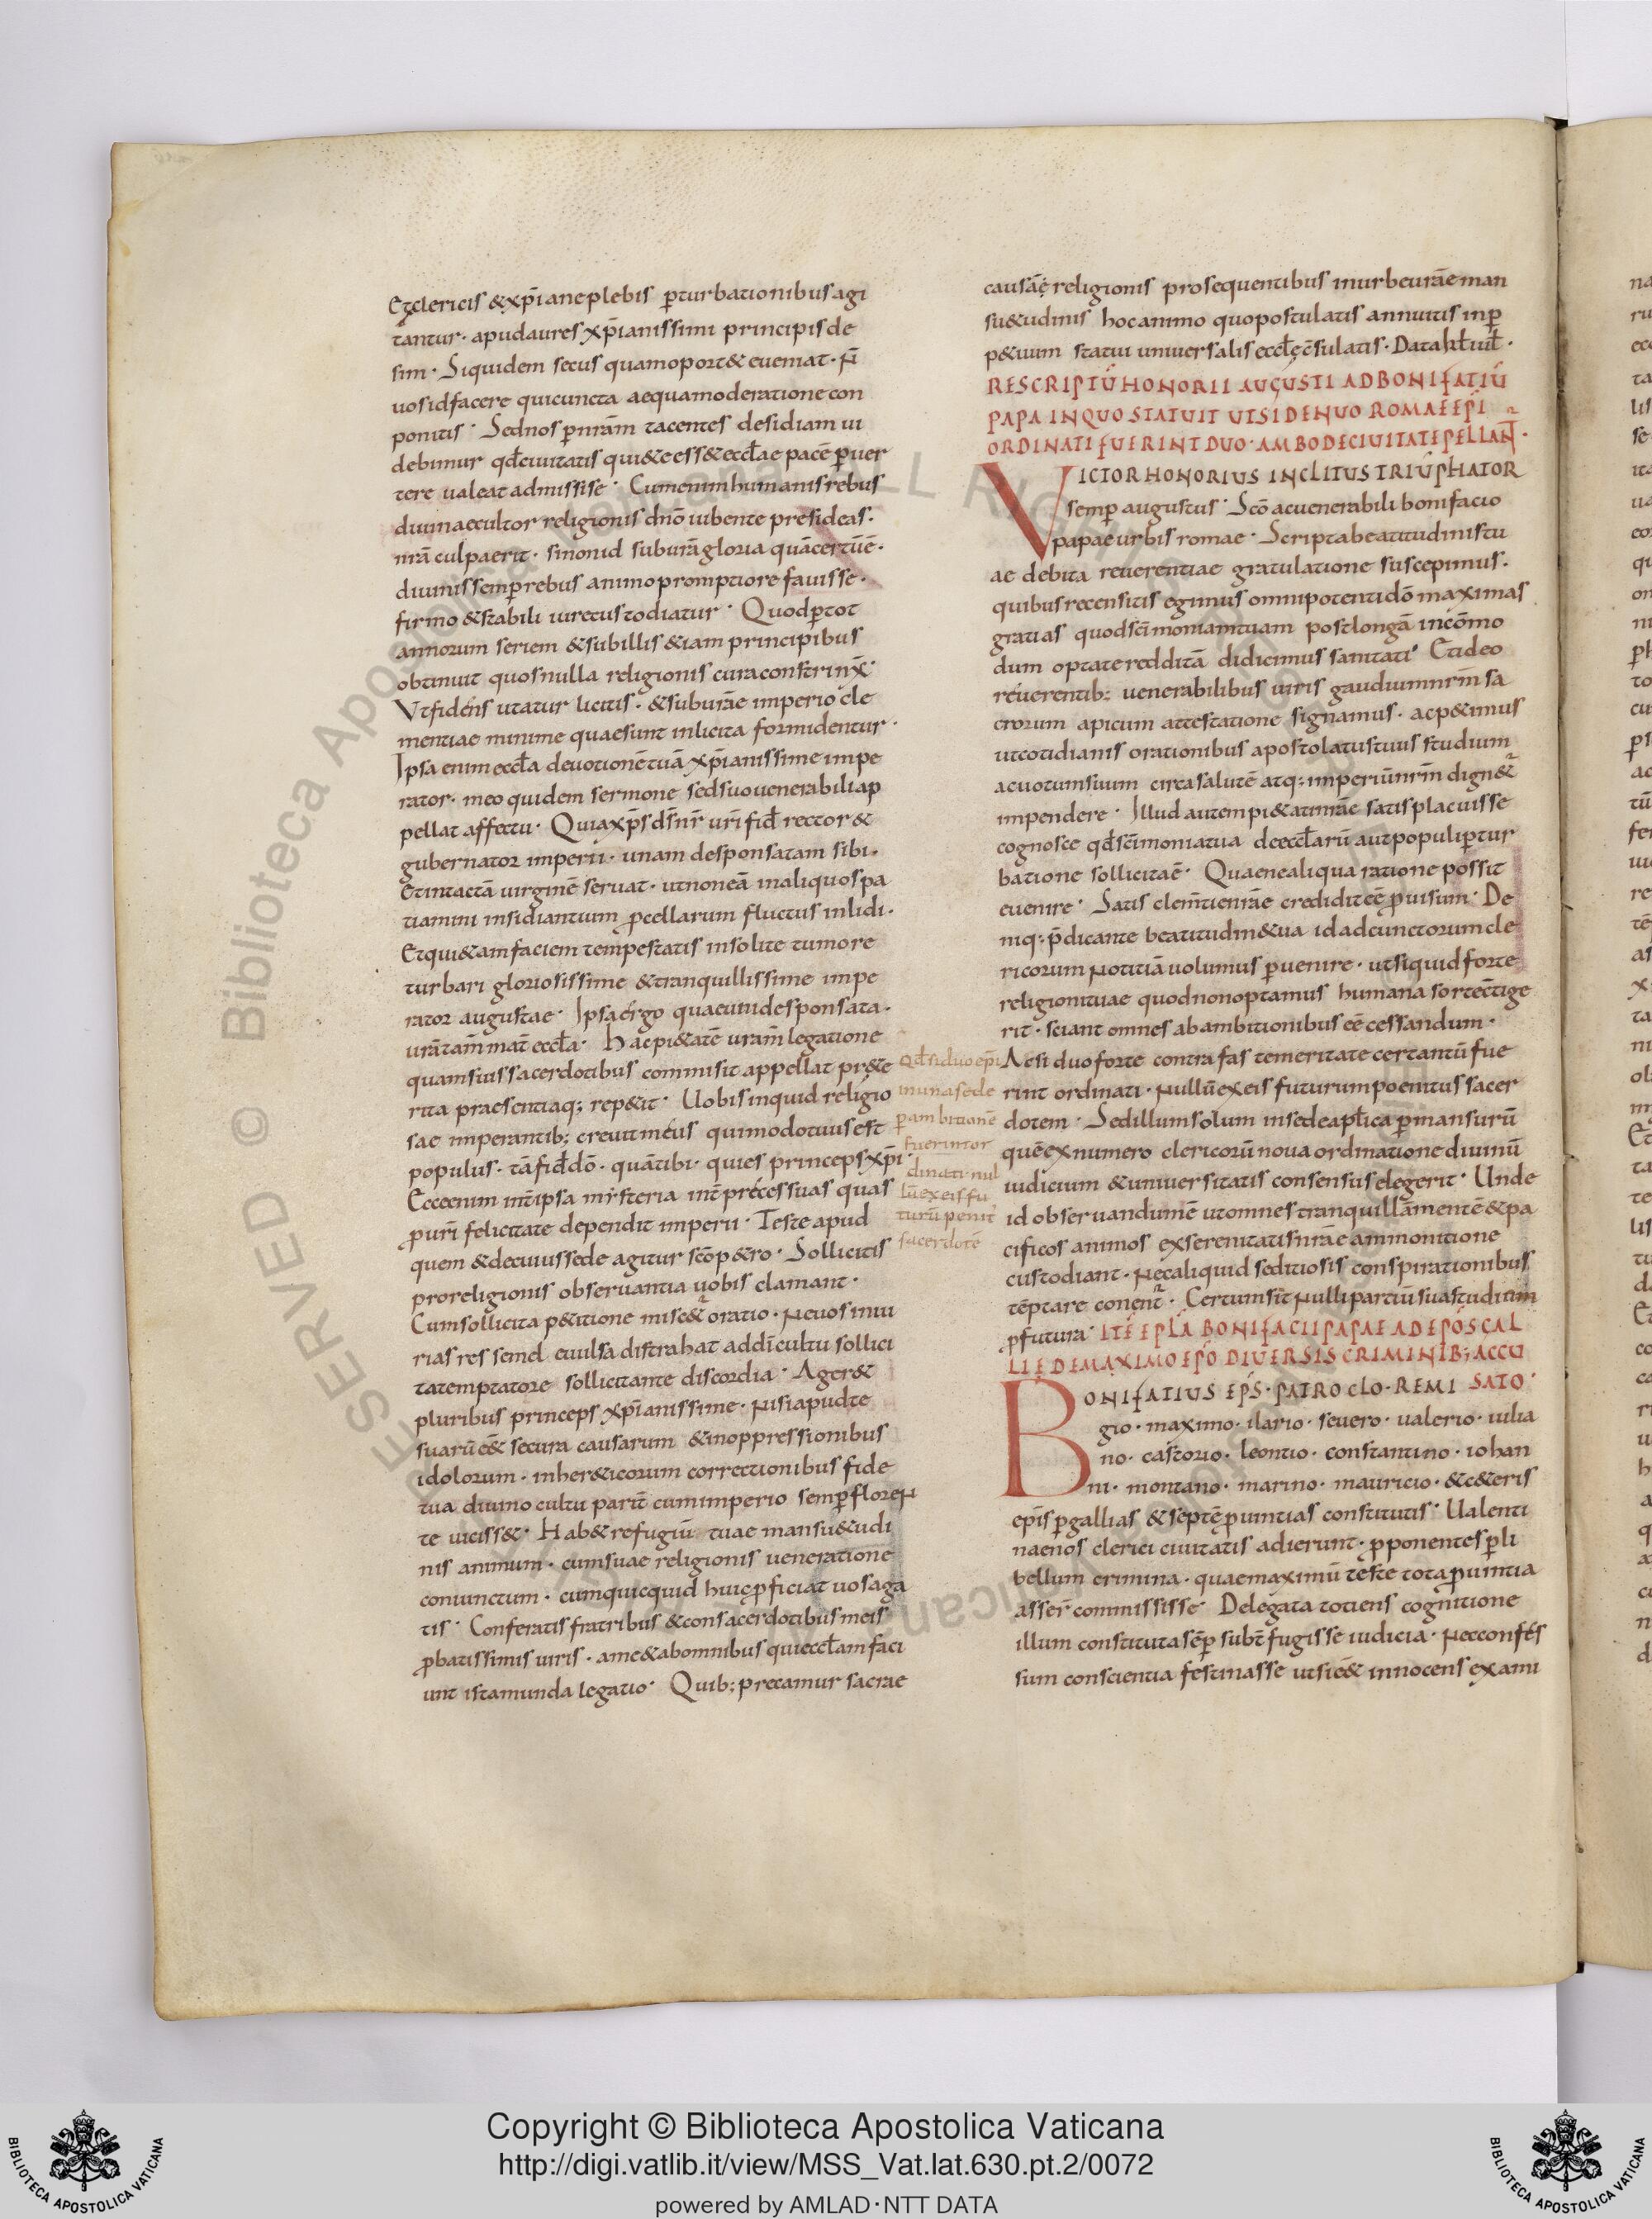 Et clericis & xp̄iane plebis p̄turbationibus agi
tantur· apud aures xp̄ianissimi principis de
sim· Siquidem secus quam oport& eueniat· N̄
uos id facere qui cuncta aequa moderatione con
ponitis· Sed nos p̄ nr̄am tacentes desidiam ui
debimur qđ ciuitatis qui&e ess& eccl̄ae pacē p̄uer
tere ualeat admissise· Cum enim humanis rebus
diuinae cultor religionis dn̄o iubente presideas·
nr̄a culpa erit· si non id sub ur̄a gloria quā certū ē·
diuinis semp̄ rebus animo promptiore fauisse·
firmo & stabili iure custodiatur· Quod p̄ tot
annorum seriem & sub illis &iam principibus
obtinuit quos nulla religionis cura constrinx̄·
Vt fidens utatur licitis· & sub ur̄ae imperio cle
mentiae minime quae sunt inlicita formidentur·
Ipsa enim eccl̄a deuotionē tuā xp̄ianissime impe
rator· meo quidem sermone sed suo uenerabili ap
pellat affectu· Quia xp̄s dš nr̄ ur̄i fid̄ rector &
gubernator imperii· unam desponsatam sibi·
Et intactā uirginē seruat· ut non eā in aliquos pa
tiamini insidiantium p̄cellarum fluctus inlidi·
Et qui&am faciem tempestatis insolite tumore
turbari gloriosissime & tranquillissime impe
rator augustae· Ipsa ergo quae cui desponsata·
ur̄a tam̄ mat̄ eccl̄a· Hac pi&atē uram̄ legatione
quam suis sacerdotibus commisit appellat pr&e
rita praesentiaq; rep&it· Uobis inquid religio
sae imperantib; creuit meus qui modo tuus est
populus· tā fid̄ dō· quā tibi· quies princeps xp̄i·
Ecce enim int̄ ipsa mysteria int̄ preces suas quas
p̄ ur̄i felicitate dependit imperii· Teste apud
quem & de cuius sede agitur sc̄o p&ro· Sollicitis
pro religionis obseruantia uobis clamant·
Cum sollicita p&itione mise&r̄ oratio· Ne uos in iu
rias res semel euulsa distrahat ad di cultu sollici
ta temptatore sollicitante discordia· Ager&
pluribus princeps xp̄ianissime· Nisi apud te
suarū ē& secura causarum & in oppressionibus
idolorum· in her&icorum correctionibus fide
tua diuino cultu parit̄ cum imperio semp̄ floren
te uiciss&· Hab& refugiū tuae mansu&udi
nis animum· cum suae religionis ueneratione
coniunctum· cum quicquid huic p̄ficiat uos aga
tis· Conferatis fratribus & consacerdotibus meis
p̄batissimis uiris· a me & ab omnibus qui eccl̄am faci
unt ista munda legatio· Quib; precamur sacrae
Qđ si duo ep̄i
in una sede
p̄ ambitionē
fuerint or
dinati· nul
lū ex eis fu
turū penit̄
sacerdotē
causāę religionis prosequentibus in urbe ur̄ae man
su&udinis hoc animo quo postulatis annuitis in p̄
p&uum statui uniuersalis eccl̄ę cs̄ulatis· Data kł iuł·
RESCRIPTŪ HONORII AUGUSTI AD BONIFATIŪ
PAPA IN QUO STATUIT UT SI DENUO ROMAE EPI
ORDINATI FUERINT DUO· AMBO DE CIUITATE PELLANT̄·
VICTOR HONORIUS INCLITUS TRIŪPHATOR
semp̄ augustus· Sc̄o ac uenerabili bonifacio
papae urbis romae· Scripta beatitudinis tu
ae debita reuerentiae gratulatione suscepimus·
quibus recensitis egimus omnipotenti dō maximas
gratias quod sc̄imoniam tuam post longā incōmo
dum optate redditā didicimus sanitati· Et ideo
reuerentib; uenerabilibus uiris gaudium nrm̄ sa
crorum apicum attestatione signamus· ac p&imus
ut cotidianis orationibus apostolatus tuus studium
ac uotum suum circa salutē atq; imperiū nrm̄ dign&r̄
impendere· Illud autem pi&ati nr̄ae satis placuisse
cognosce qđ sc̄imonia tua de eccl̄arū aut populi p̄tur
batione sollicita ē· Quae ne aliqua ratione possit
euenire· Satis clem̄tie nr̄ae credidit ēē p̄uisum· De
niq; p̄dicante beatitudin& ua id ad cunctorum cle
ricorum notitiā uolumus p̄uenire· ut si quid forte
religioni tuae quod non optamus humana sorte cn̄tige
rit· sciant omnes ab ambitionibus eē cessandum·
Ac si duo forte contra fas temeritate certantū fue
rint ordinati· Nullū ex eis futurum poenitus sacer
dotem· Sed illum solum in sede aplica p̄mansurū
quē ex numero clericorū noua ordinatione diuinū
iudicium & uniuersitatis consensus elegerit· Unde
id obseruandum ē ut omnes tranquillā mentē & pa
cificos animos ex serenitatis nr̄ae ammonitione
custodiant· Nec aliquid seditiosis conspirationibus
tēptare conent̄r· Certum sit̄ nulli partiū sua studium
p̄futura· ITĒ EPLA BONIFACII PAPAE AD EPOS GAL
LIĘ DE MAXIMO EPO DIUERSIS CRIMINIB; ACCU
BONIFATIUS EPS· PATROCLO· REMI SATO·
gio· maximo· ilario· seuero· ualerio· iulia
no· castorio· leontio· constantino· iohan
ni· montano· marino· mauricio· & c&eris
ep̄is p̄ gallias & septē p̄uintias constitutis· Ualenti
nae nos clerici ciuitatis adierunt· p̄ponentes p̄ li
bellum crimina· quae maximū teste tota p̄uintia
asser̄ commississe· Delegata totiens cognitione
illum constituta sēp̄ subt̄fugisse iudicia· Nec confes
sum conscientia festinasse ut si ē& innocens exami
Copyright © Biblioteca Apostolica Vaticana
http://digi.vatlib.it/view/MSS_Vat.lat.630.pt.2/0072
powered by AMLAD·NTT DATA
BIBLIOTECA APOSTOLICA VATICANA
BIBLIOTECA APOSTOLICA VATICANA